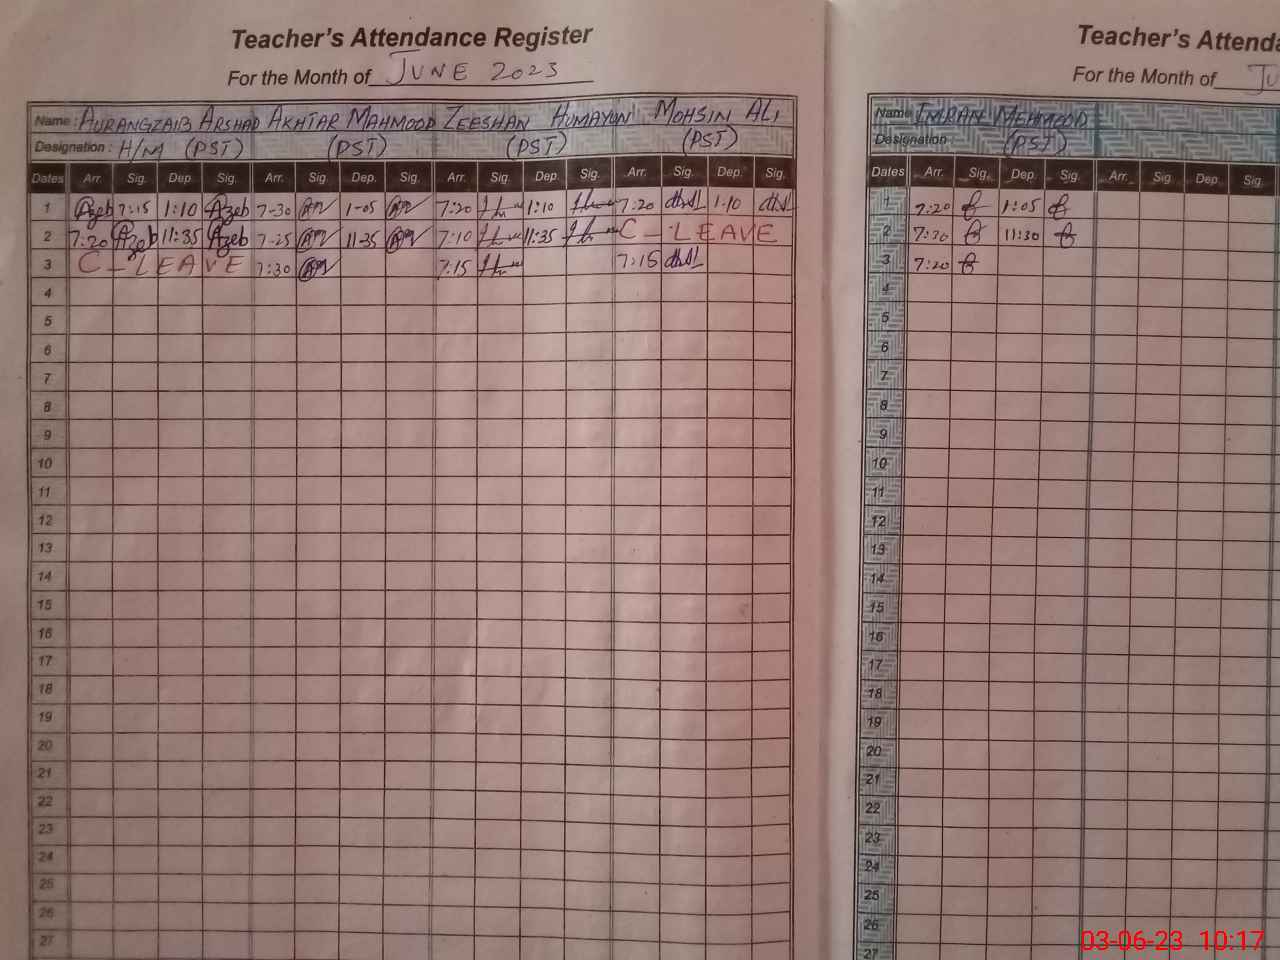 Teacher's Attendance Register
For the Month of JUNE 2023
Name : AURANGZAIB ARSHAD AKHTAR MAHMOOD ZEESHAN HUMAYUN MOHSIN ALI
Designation : H/M (PST) (PST) (PST) (PST)
Dates Arr. Sig. Dep. Sig. Arr. Sig. Dep. Sig. Arr. Sig. Dep. Sig. Arr. Sig. Dep. Sig.
1 Azeb 7:15 1:10 Azeb 7-30 1-05 7:20 1:10 7:20 1-10
2 7:20 Azeb 11:35 Azeb 7-25 11-35 7:10 11:35 C - LEAVE
3 C - LEAVE 7:30 7:15 7:15
4
5
6
7
8
9
10
11
12
13
14
15
16
17
18
19
20
21
22
23
24
25
26
27
Teacher's Attenda
For the Month of JU
Name IMRAN MEHMOOD
Designation : (PST)
Dates Arr. Sig. Dep. Sig. Arr. Sig. Dep. Sig.
1 7:20 1:05
2 7:30 11:30
3 7:20
4
5
6
7
8
9
10
11
12
13
14
15
16
17
18
19
20
21
22
23
24
25
26
27
03-06-23 10:17